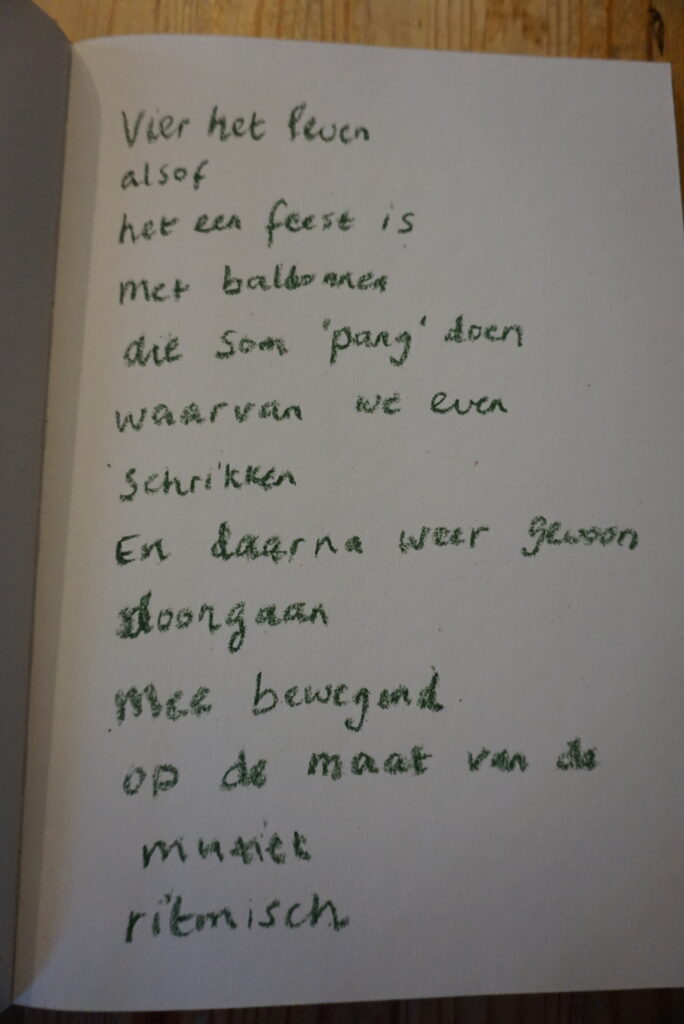 Vier het leven
alsof
het een feest is
met ballonnen
die som 'pang' doen
waarvan we even
schrikken
En daarna weer gewoon
doorgaan
Mee bewegend
op de maat van de
muziek
ritmisch